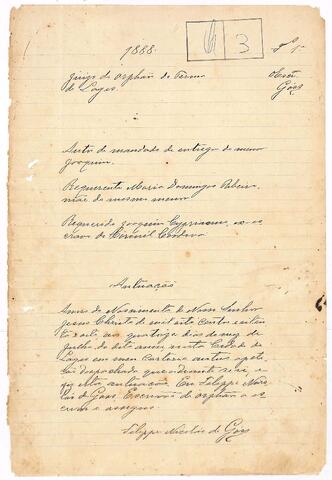 1888.
3
fl 1
Juizo de orphãos do Termo
de Lages.
Escr.
Góss
Auto de mandado de entrega do menor
Joaquim.
Requerente Maria Domingos Ribeiro,
mãe do mesmo menor.
Requerido Joaquim Cypriano, ex-es
cravo do Coronel Cordova
Autuação
Anno do Nascimento de Nosso Senhor
Jesus Christo de mil oito centos e oiten
ta e oito aos quatorze dias do mez de
Julho do dito anno nesta Cidade de
Lages em meu Cartorio autuo a peti
ção despachada que adiante se vê, e
fiz esta autuação. Eu Felippe Nico
lao de Goss, Escrivão de orphãos o es
crevi e assigno
Felippe Nicolao de Goss